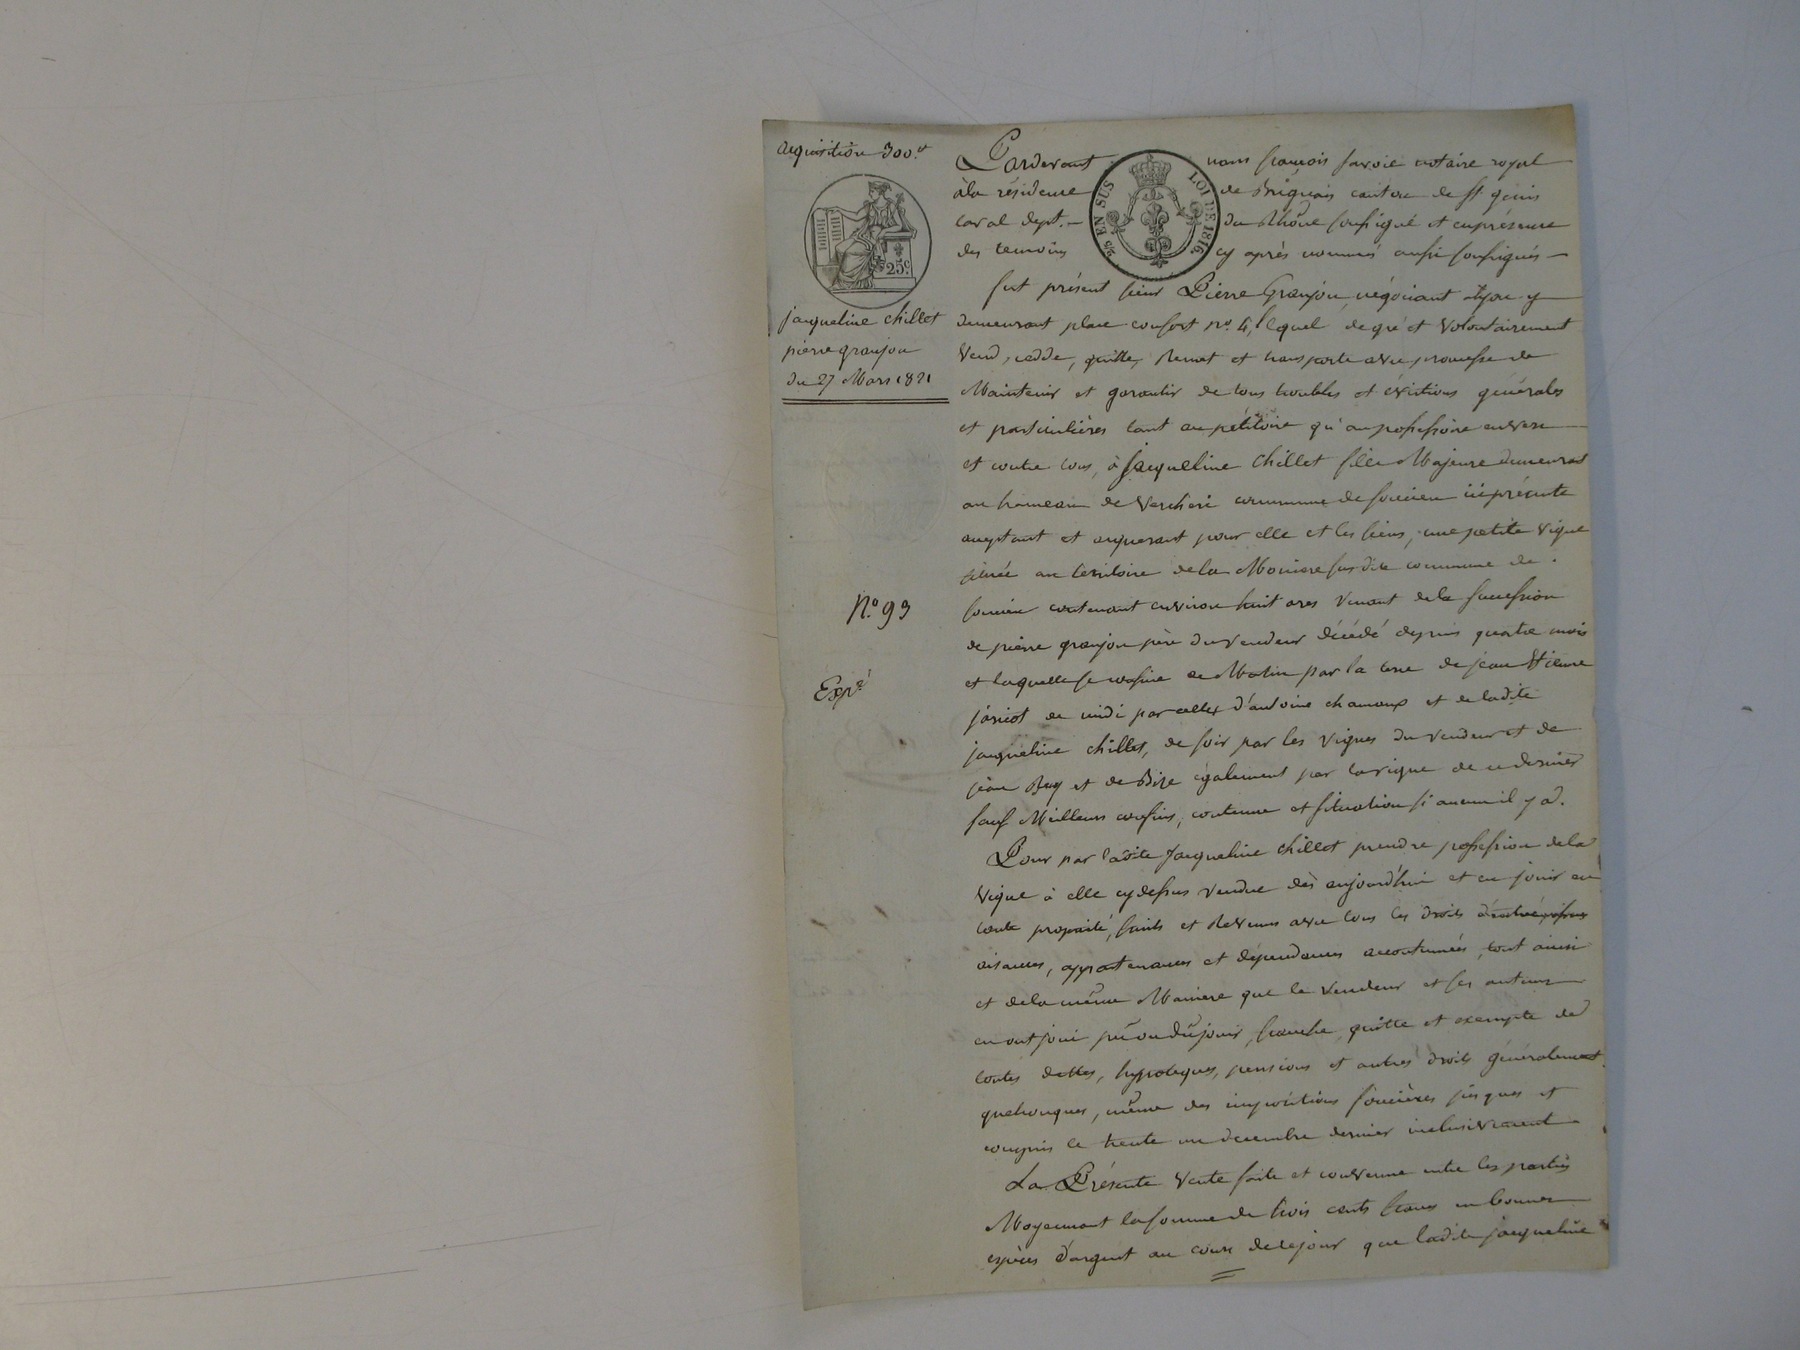 acquisition 300.f
25c.
jacqueline chillet
pierre granjon
du 27 Mars 1821
N.o 93
Exp.é
2/8 EN SUS LOI DE 1816
Pardevant nous françois savoie notaire royal
à la résidence de Brignais canton de st genis
laval dept. du Rhône soussigné et en présence
des temoins cy après nommés aussi soussignés
fut présent sieur Pierre Granjon négociant à lyon y
demeurant place confort no. 4, lequel de gré et volontairement
vend, cedde, quitte, Remet et transporte avec promesse de
Maintenir et garantir de tous troubles et évictions générales
et particulières tant au pétitoire qu'au possessoire envers
et contre tous, à jacqueline Chillet fille Majeure demeurant
au hameau de Vercheri commune de soucieu ici présente
acceptant et acquerant pour elle et les siens, une petite vigne
située au territoire de la susdite commune de
soucieu contenant environ huit ares venant de la succession
de pierre granjon père du vendeur décédé depuis quatre mois
et laquelle se confine de Matin par la terre de jean Etienne
jaricot de midi par celles d'antoine chamoux et de ladite
jacqueline chillet, de soir par les vignes du vendeur et de
jean et de Bize également par la vigne de ce dernier
sauf Meilleurs confins, contenue et situation si aucun il y a.
Pour par ladite Jacqueline Chillet prendre possession de la
vigne à elle cydessus vendue dès aujourd'hui et en jouir en
toute propriété, fruits et Revenus avec tous les droits d'entrée, issues
aisances, appartenances et dépendances accoutumées, tout ainsi
et de la même Maniere que le vendeur et ses auteurs
en ont joui pu ou dû jouir, franche, quitte et exempte de
toutes dettes, hypoteques, pensions et autres droits généralement
quelconques, même des impositions foncières jusques et
compris le trente un decembre dernier inclusivement
La Présente vente faite et convenue entre les parties
Moyennant la somme de trois cents francs en bonnes
espèces d'argent au cours de ce jour que ladite jacqueline